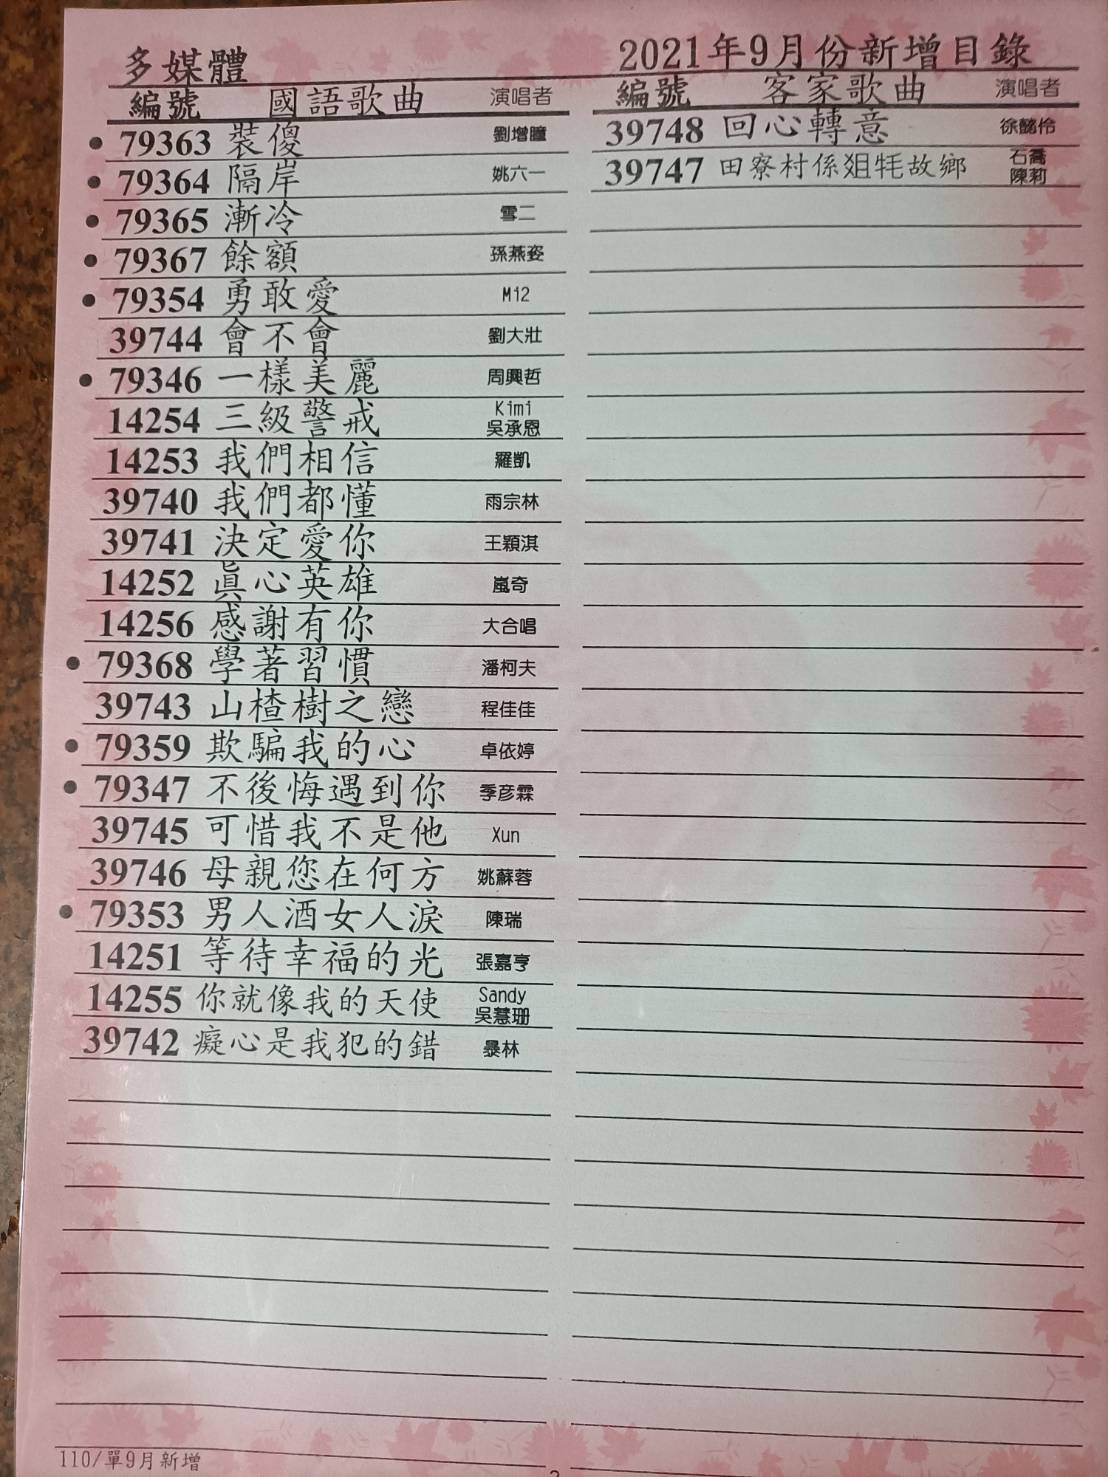 多媒體
2021年9月份新增目錄
編號 國語歌曲 演唱者
● 79363 裝傻 劉增瞳
● 79364 隔岸 姚六一
● 79365 漸冷 雪二
● 79367 餘額 孫燕姿
● 79354 勇敢愛 M12
39744 會不會 劉大壯
● 79346 一樣美麗 周興哲
14254 三級警戒 Kimi 吳承恩
14253 我們相信 羅凱
39740 我們都懂 雨宗林
39741 決定愛你 王穎淇
14252 真心英雄 嵐奇
14256 感謝有你 大合唱
● 79368 學著習慣 潘柯夫
39743 山楂樹之戀 程佳佳
● 79359 欺騙我的心 卓依婷
● 79347 不後悔遇到你 季彦霖
39745 可惜我不是他 Xun
39746 母親您在何方 姚蘇蓉
● 79353 男人酒女人淚 陳瑞
14251 等待幸福的光 張嘉亨
14255 你就像我的天使 Sandy 吳慧珊
39742 癡心是我犯的錯 暴林
編號 客家歌曲 演唱者
39748 回心轉意 徐懿伶
39747 田寮村係𠊎牦故鄉 石喬 陳莉
110/單9月新增